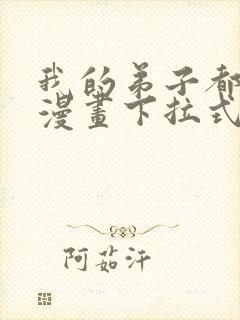 我的弟子都
漫畫下拉式
阿茹汗